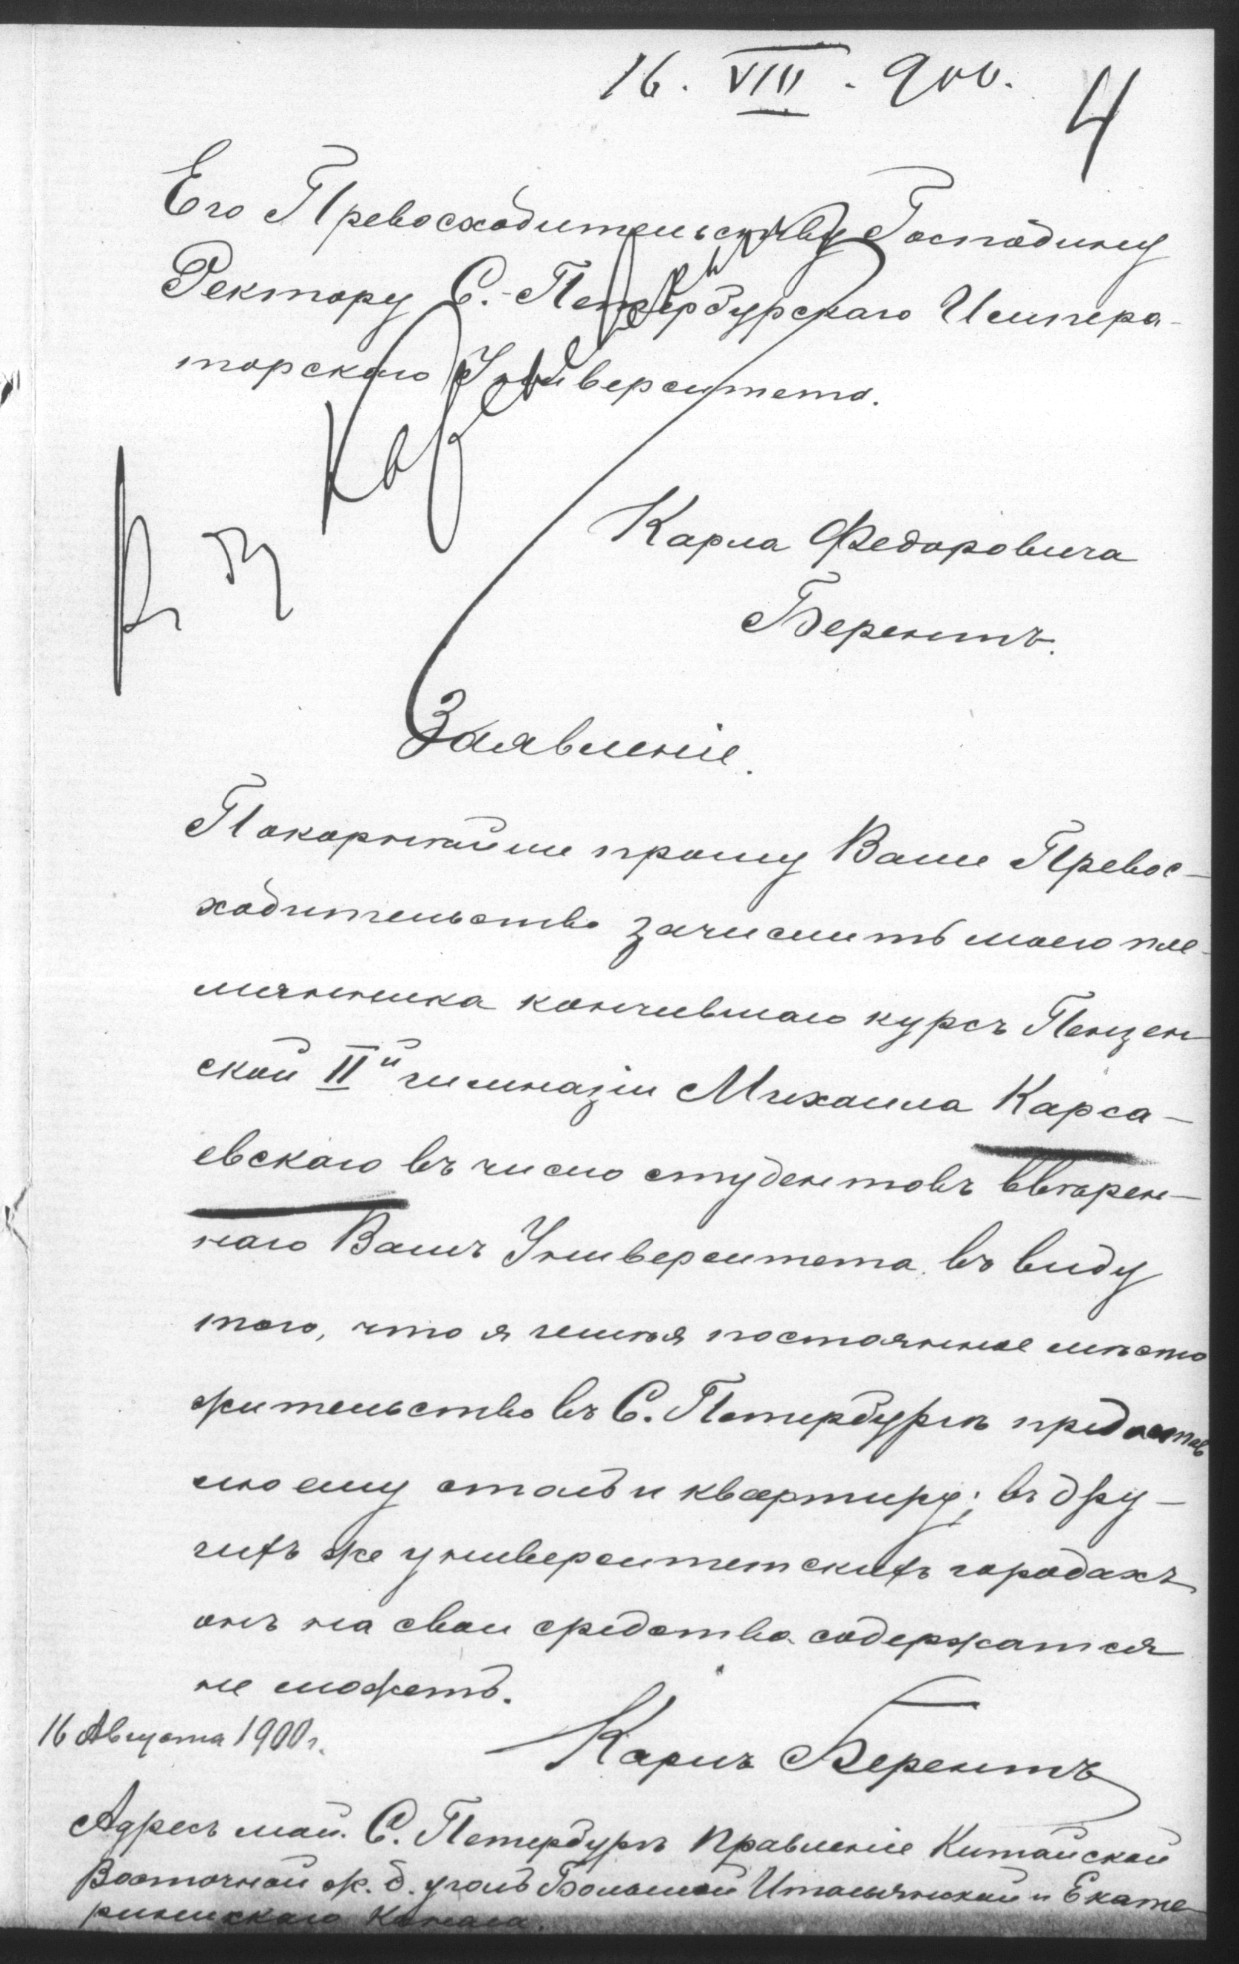 16. VIII. 900.
4
Его Превосходительству Господину
Ректору С.-Петербурскаго Импера-
торскаго Университета.
Карла Федоровича
Берентъ.
Заявленіе.
Покорнѣйше прошу Ваше Превос-
ходительство зачислить моего пле-
мянника кончившаго курсъ Пензен
ской IIй гимназіи Михаила Карса-
евскаго въ число студентовъ ввѣрен-
наго Вамъ Университета въ виду
того, что я имѣя постоянное мѣсто
жительство въ С. Петербургѣ предостав
лю ему столъ и квартиру; въ дру-
гихъ же университетскихъ городахъ
онъ на свои средства содержатся
не можетъ.
16 Августа 1900 г.
Карлъ Берентъ
Адресъ мой. С. Петербургъ Правленіе Китайской
Восточной ж. д. уголъ Большой Итальянской и Екате
рининскаго Канала.